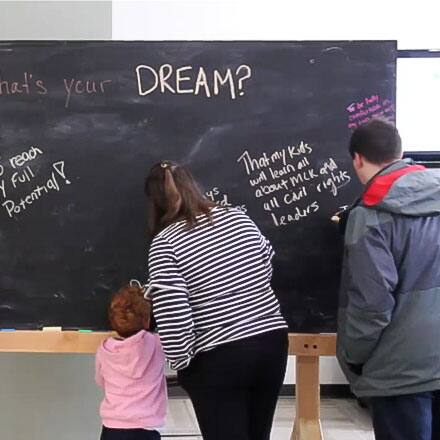 hat's your DREAM?
reach
Full
Potential!
That my kids
will learn all
about MLK and
all Civil rights
leaders
To be fully